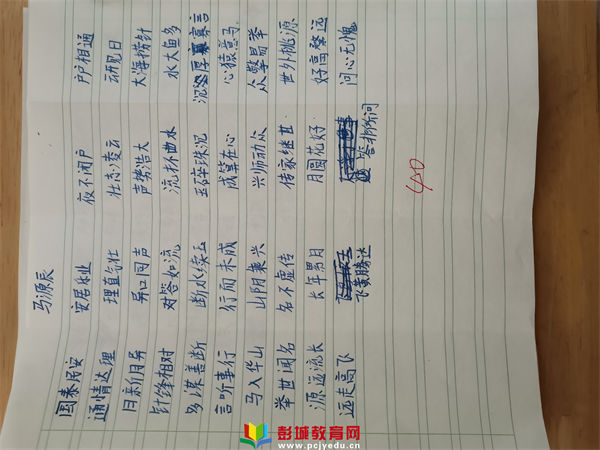 马源辰
国泰民安 安居乐业 夜不闭户 户户相通
通情达理 理直气壮 壮志凌云 云开见日
日新月异 异口同声 声势浩大 大海捞针
针锋相对 对答如流 流杯曲水 水大鱼多
多谋善断 断水续玉 玉碎珠沉 沉厚寡言
言听事行 行而未成 成算在心 心猿意马
马入华山 山阴乘兴 兴师动众 众擎易举
举世闻名 名不虚传 传家继世 世外桃源
源远流长 长年累月 月圆花好 好高骛远
远走高飞 飞黄腾达 答非所问 问心无愧
40
彭城教育网
www.pcjyedu.cn